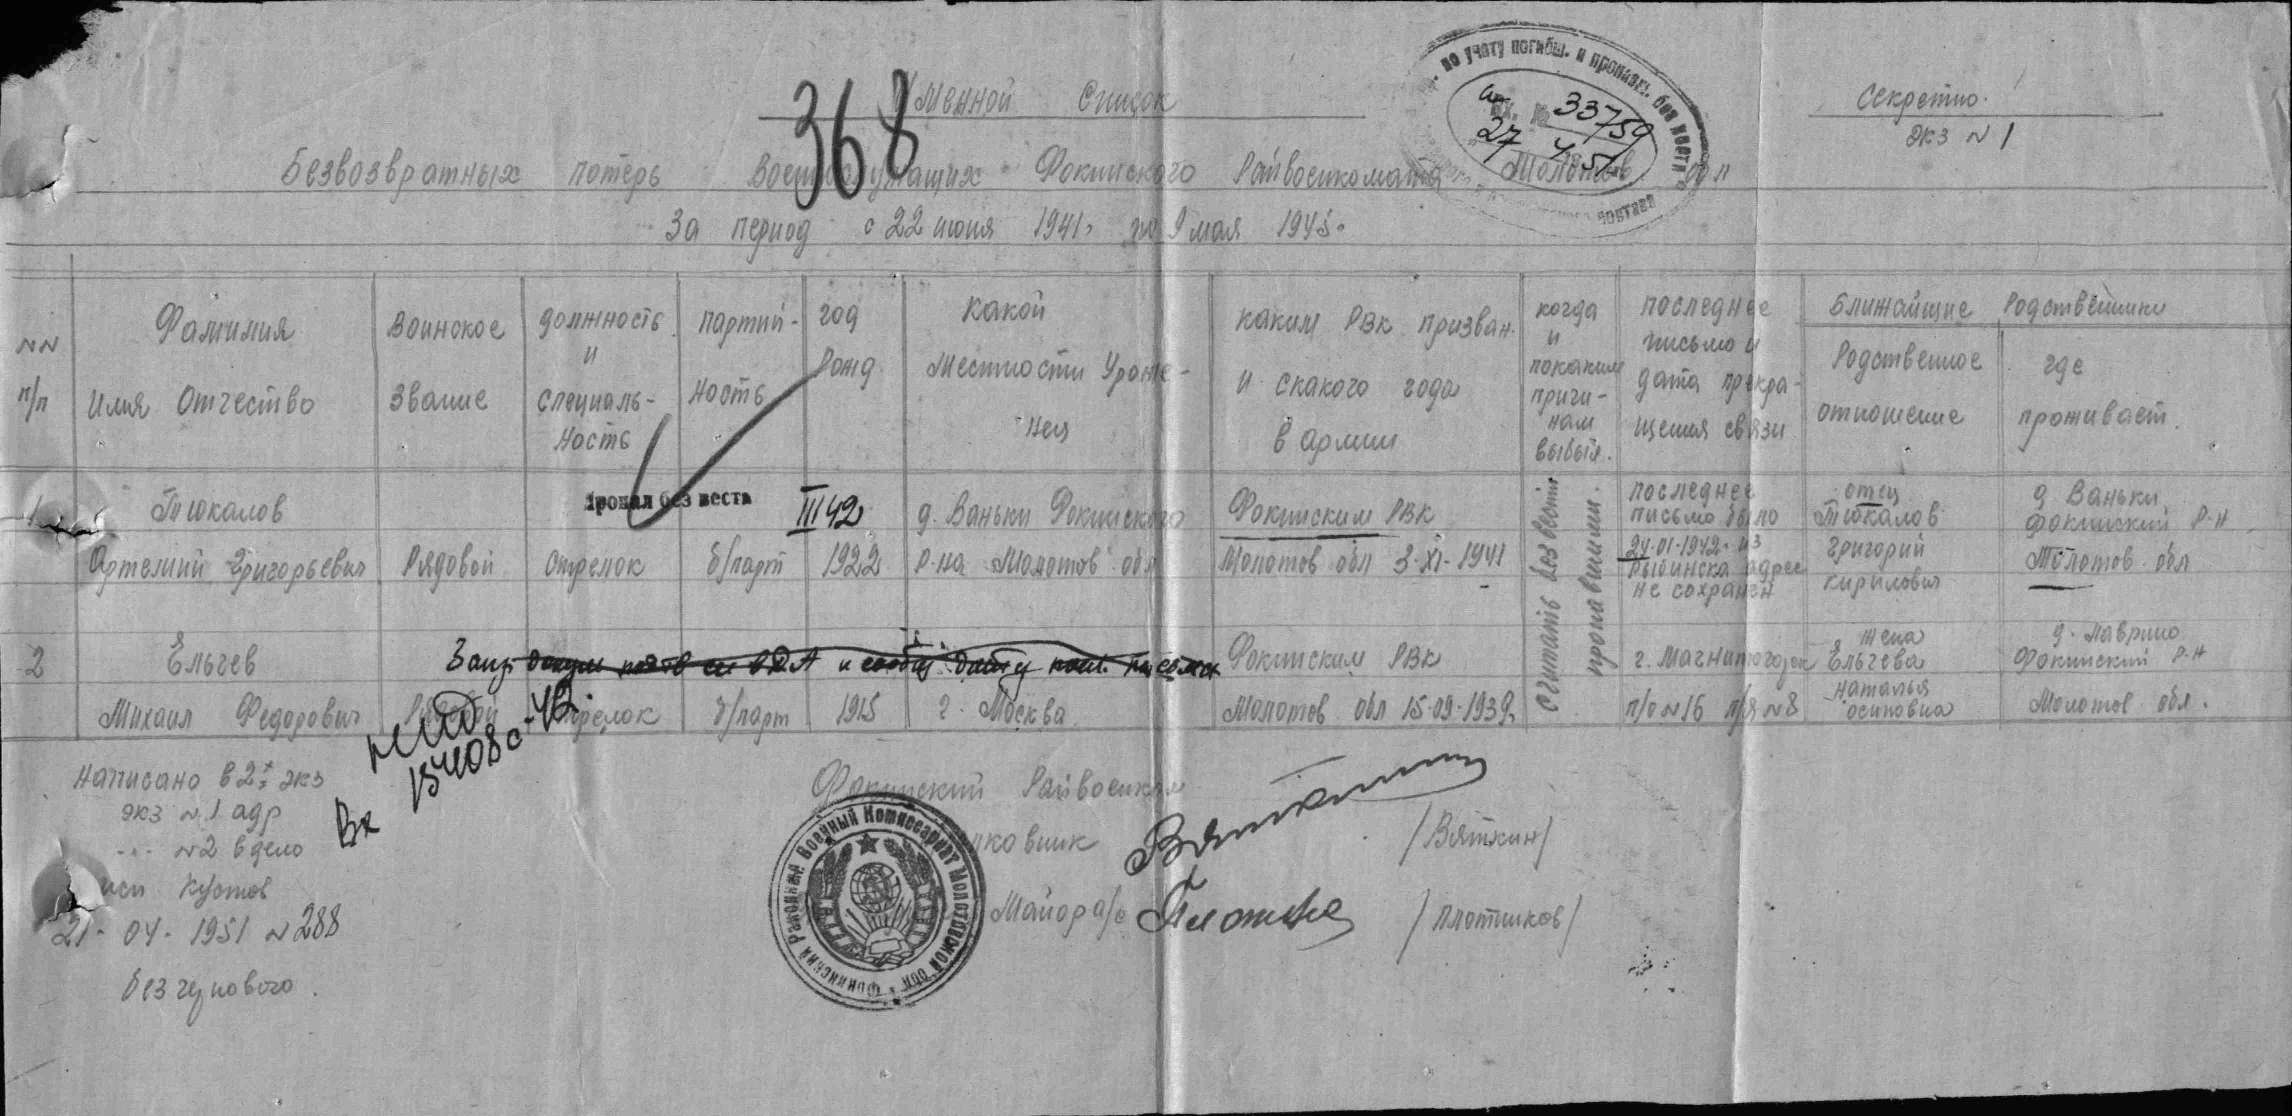 Секретно.
экз N 1
368
Именной список
Безвозвратных потерь Военнослужащих Фокинского Райвоенкомата Молотов обл
За период с 22 июня 1941 по 9 мая 1945.
по учету погибш. и пропавш. без вести
Вх. № 33759
27 4 51
NN п/п
Фамилия Имя Отчество
Воинское звание
должность и специаль-ность
партий-ность
год рожд
какой местности Уроже-нец
каким РВК призван и скакого года в армии
когда и покаким причи-нам выбыл.
последнее письмо и дата прекра-щения связи
Ближайшие Родственники
Родственное отношение
где проживает.
Пропал без вести III 42
1 Тюкалов Артемий Григорьевич
Рядовой
стрелок
б/парт
1922
д. Ваньки Фокинского р-на Молотов обл
Фокинским РВК Молотов обл 3-XI-1941
считать без вести пропавшими.
последнее письмо было 24-01-1942 из Рыбинска адрес не сохранен
отец Тюкалов Григорий Кирилович
д Ваньки Фокинский р-н Молотов обл
2 Ельчев Михаил Федорович
Рядовой
стрелок
б/парт
1915
г. Москва
Фокинским РВК Молотов обл 15-09-1939
г. Магнитогорск п/о N 16 п/я N 8
жена Ельчева Наталья осиповна
д. Лаврино Фокинский р-н Молотов обл.
Вх
Написано в 2х экз
экз N 1 адр
N2 в дело
исп Кустов
21-04-1951 N 288
без чернового.
Фокинский Райвоенком
Вяткин /Вяткин/
Майор а/с /Плотников/
Фокинский Районный Военный Комиссариат Молотовской обл.